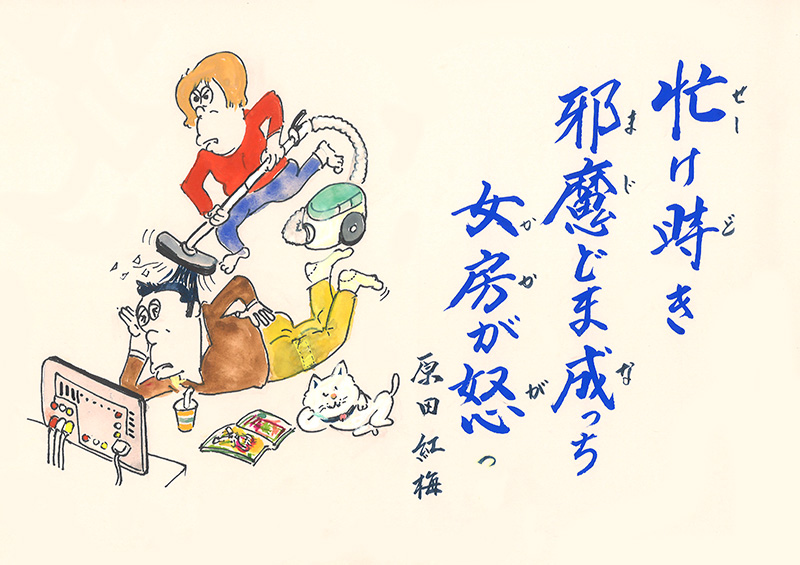 忙け時き
せー ど
邪魔どま成っち
まじ な
女房が怒っ
かか が
原田紅梅